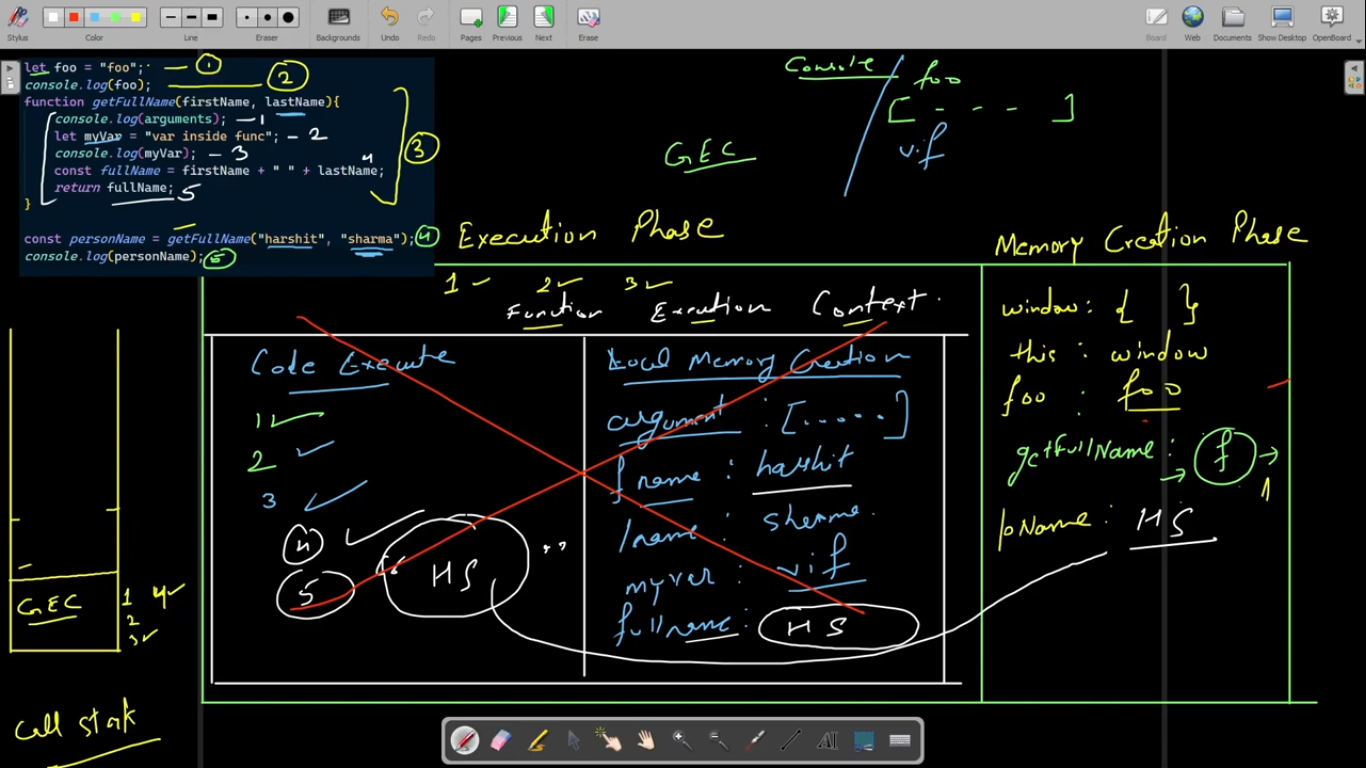 Stylus Color Line Eraser Backgrounds Undo Redo Pages Previous Next Erase Board Web Documents Show Desktop OpenBoard
let foo = "foo"; — 1
console.log(foo); 2
function getFullName(firstName, lastName){
console.log(arguments); — 1
let myVar = "var inside func"; — 2
console.log(myVar); — 3
const fullName = firstName + " " + lastName; 4
return fullName; 5
} 3
const personName = getFullName("harshit", "sharma"); 4
console.log(personName); 5
Console
foo
[ - - - ]
v.if
GEC
Execution Phase
Memory Creation Phase
1 ✓ 2 ✓ 3 ✓
Function Execution Context.
Code Execute
1 ✓
2 ✓
3 ✓
4 ✓
5 "HS"
Local Memory Creation
argument : [......]
fname : harshit
lname : sharma.
myvar : vif
fullname : HS
window: { }
this : window
foo : foo
getFullName : f
1
pName : HS
GEC 1 4 ✓
2
3 ✓
Call stack